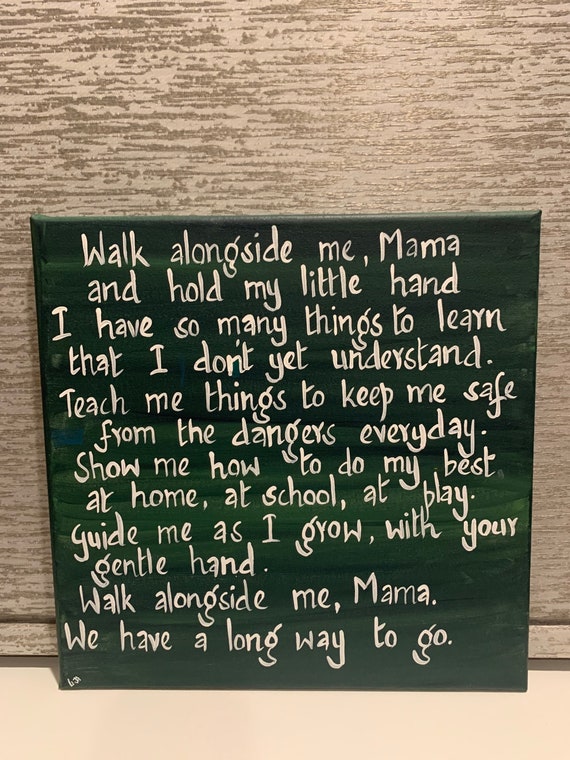 Walk alongside me, Mama
and hold my little hand
I have so many things to learn
that I don't yet understand.
Teach me things to keep me safe
from the dangers everyday.
Show me how to do my best
at home, at school, at play.
Guide me as I grow, with your
gentle hand.
Walk alongside me, Mama.
We have a long way to go.